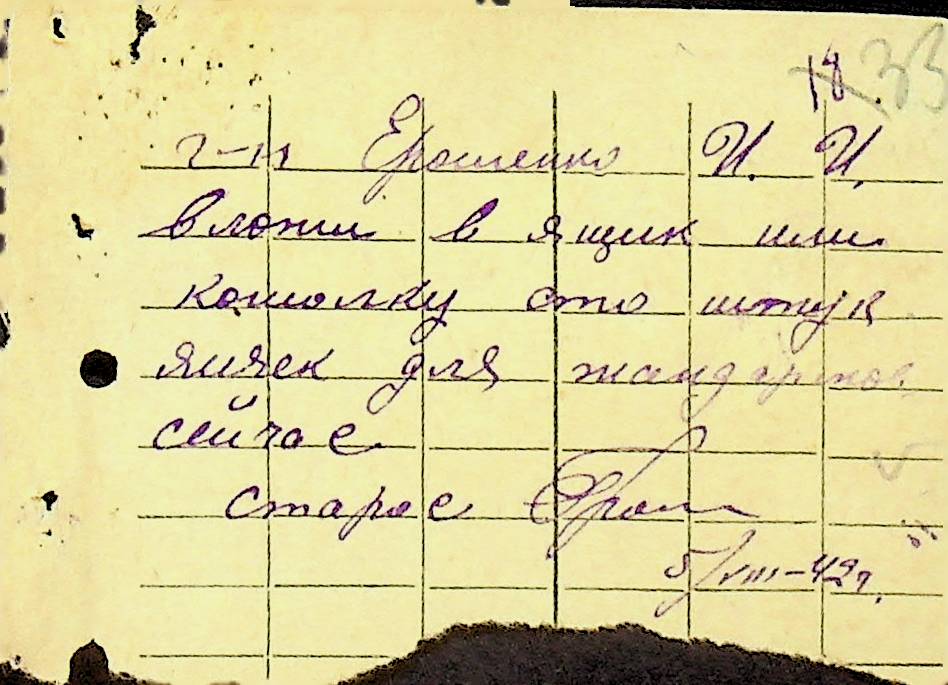 18. 33
г-н Ерошенко И. И.
вложи в ящик или
кошолку сто штук
яияек для жандармов
сейчас
старос
5/VIII-42 г.